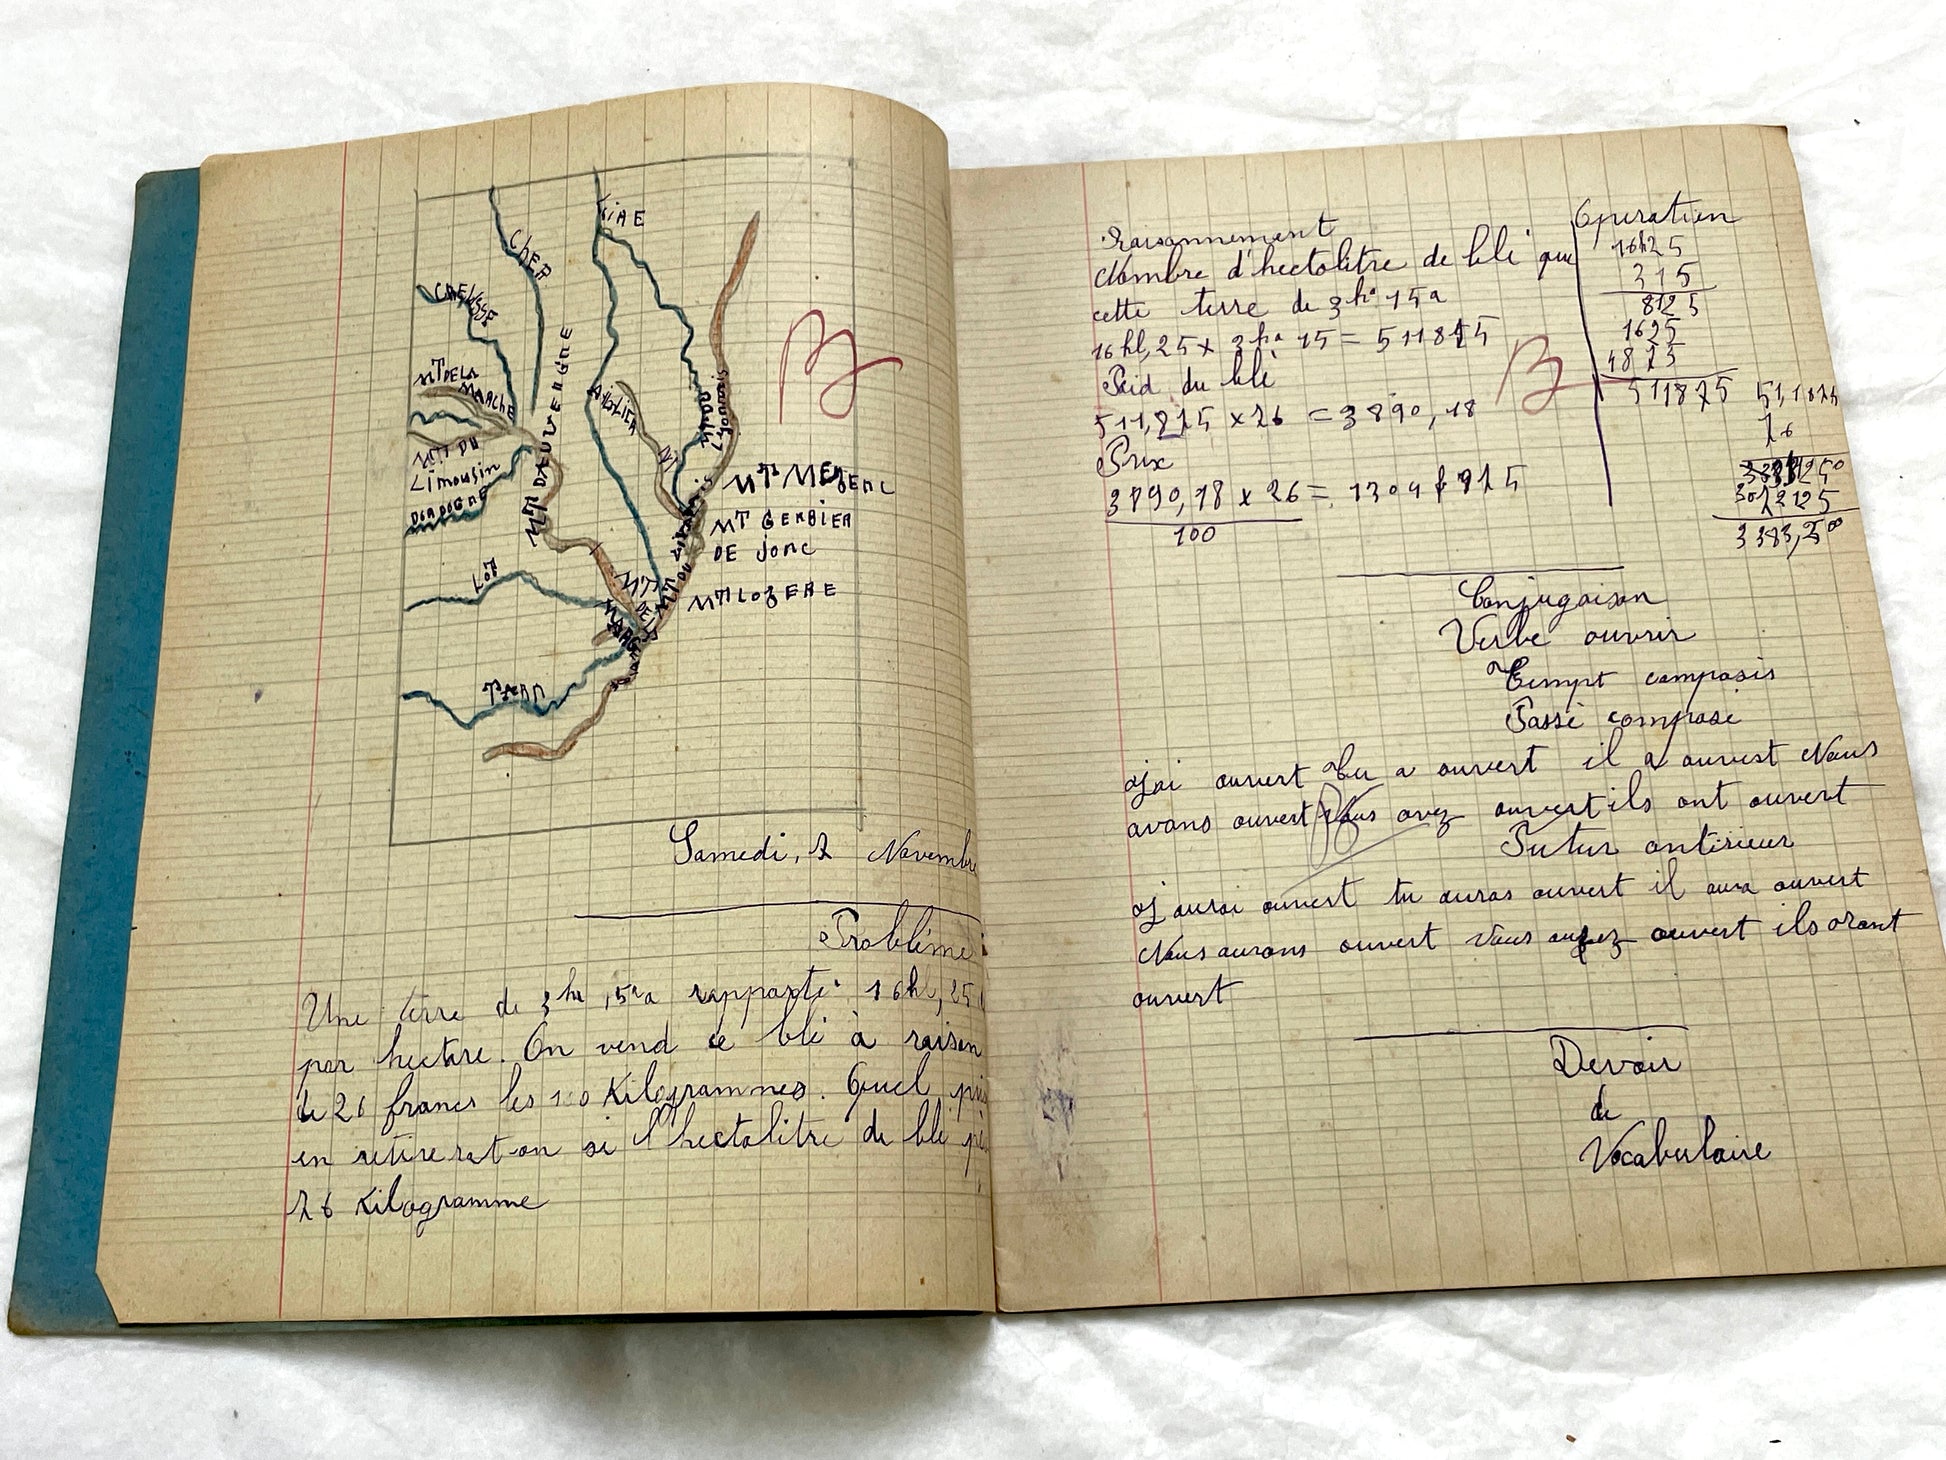 CHER
CREUSE
MT DE LA
MARCHE
MT DU
Limousin
DORDOGNE
MT D AUVERGNE
ALLIER
MT MEZENC
MT GERBIER
DE jonc
MT LOZERE
MT
DE LA
LOT
TARN
B
Samedi, 7 Novembre
Problème
Une terre de 3 ha 15 a rapporté 16 hl, 25
par hectare. On vend ce blé à raison
de 26 francs les 100 Kilogrammes. Quel
en retirerat-on si l'hectolitre de blé
76 Kilogramme
Raisonnement
Nombre d'hectolitre de blé que
cette terre de 3 ha 15 a
16 hl, 25 x 3 ha 15 = 511875
Poid du blé
511,875 x 76 = 3890,18
Prix
3890,18 x 26 =
100
Opération
1625
315
8125
1625
4875
511875
51,1875
76
3071125
3383,50
B
Conjugaison
Verbe ouvrir
Tempt composés
Passé composé
J'ai ouvert Tu a ouvert il a ouvert Nous
avons ouvert Vous avez ouvert ils ont ouvert
Futur antérieur
J'aurai ouvert tu auras ouvert il aura ouvert
Nous aurons ouvert Vous aurez ouvert ils oront
ouvert
Devoir
de
Vocabulaire